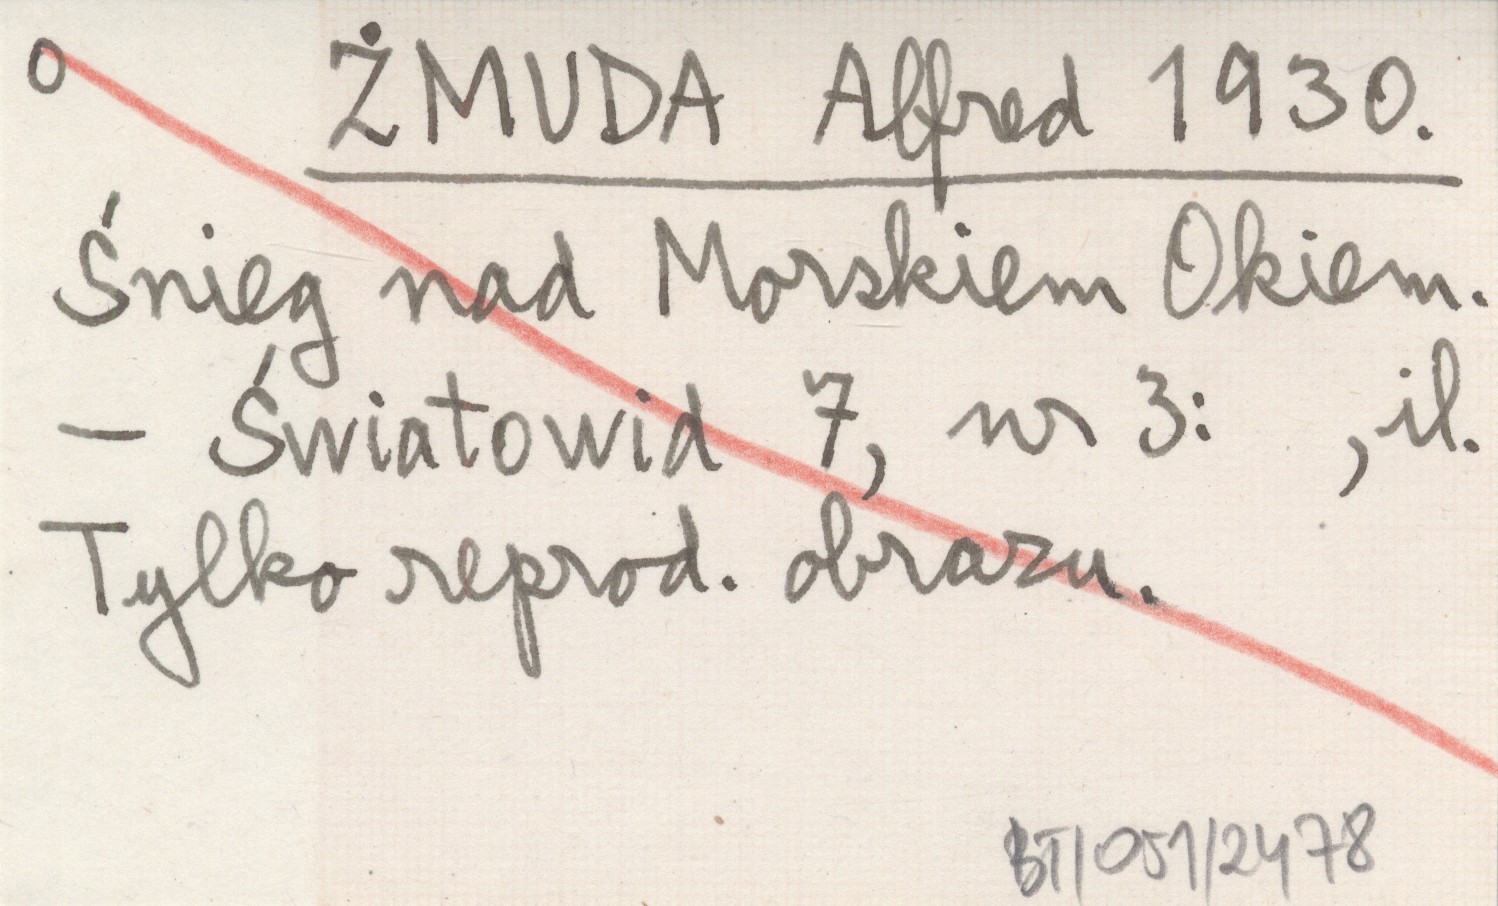 o ŻMUDA Alfred 1930.
Śnieg nad Morskiem Okiem.
– Światowid 7, nr 3: , il.
Tylko reprod. obrazu.
BT/051/2478